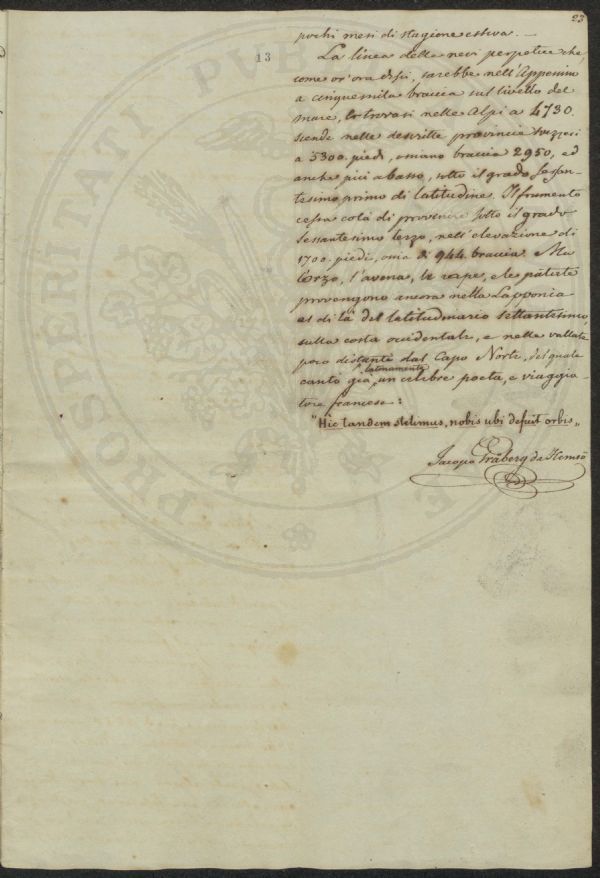 23
pochi mesi di stagione estiva. —
13
La linea delle nevi perpetue che,
come or' ora dissi, sarebbe nell' Appenino
a cinquemila braccia sul livello del
mare, e trovasi nelle Alpi a 4730.
scende nelle descritte provincie svezzesi
a 5300. piedi, ossiano braccia 2950, ed
anche più a basso, sotto il grado sessan-
tesimo primo di latitudine. Il frumento
cessa colà di provenire sotto il grado
sessantesimo terzo, nell' elevazione di
1700. piedi, ossia di 944. braccia. Ma
l'orzo, l'avena, le rape, e le patate
provengono ancora nella Lapponia
al di là del latitudinario settantesimo,
sulla costa occidentale, e nelle vallate
poco distante dal Capo Norte, del quale
latinamente
cantò già un celebre poeta, e viaggia-
tore francese:
"Hic tandem stetimus, nobis ubi defuit orbis„
Jacopo Gråberg da Hemsö